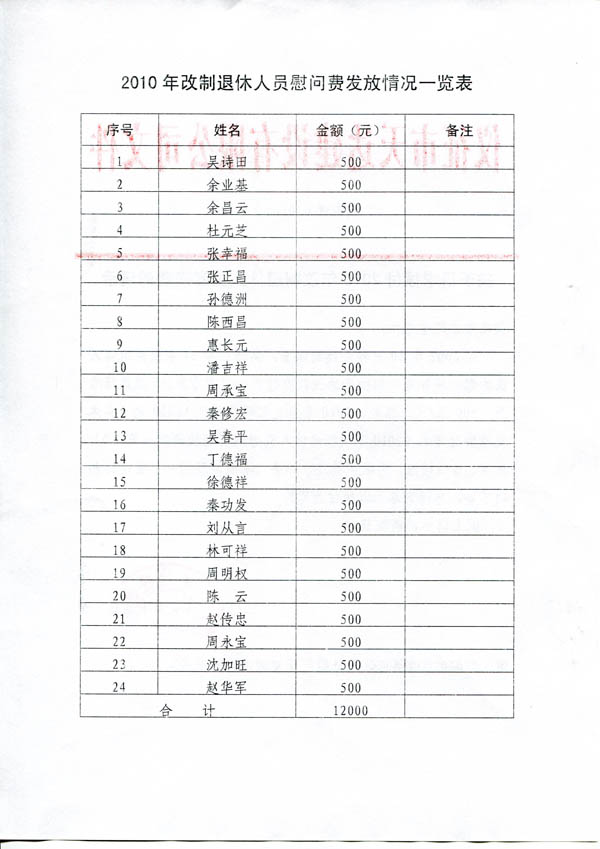 2010年改制退休人员慰问费发放情况一览表
序号 姓名 金额（元） 备注
1 吴诗田 500
2 余业基 500
3 余昌云 500
4 杜元芝 500
5 张幸福 500
6 张正昌 500
7 孙德洲 500
8 陈西昌 500
9 惠长元 500
10 潘吉祥 500
11 周承宝 500
12 秦修宏 500
13 吴春平 500
14 丁德福 500
15 徐德祥 500
16 秦功发 500
17 刘从言 500
18 林可祥 500
19 周明权 500
20 陈　云 500
21 赵传忠 500
22 周永宝 500
23 沈加旺 500
24 赵华军 500
合　计 12000